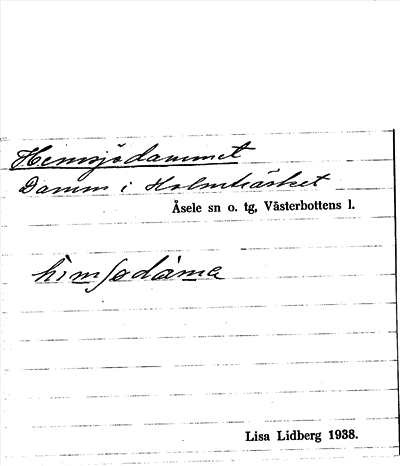 Hemsjödammet
Damm i Holmträsket
Åsele sn o. tg, Västerbottens l.
hìmʃødàmɛ
Lisa Lidberg 1938.